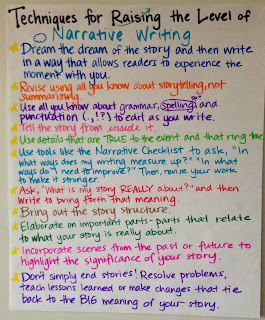 Techniques for Raising the Level of
Narrative Writing
Dream the dream of the story and then write
in a way that allows readers to experience the
moment with you.
Revise using all you know about storytelling, not
summarizing.
Use all you know about grammar, spelling, and
punctuation (.,!?) to edit as you write.
Tell the story from inside it.
Use details that are TRUE to the event and that ring true
Use tools like the Narrative Checklist to ask, "In
what ways does my writing measure up?" "In what
ways do I need to improve?" Then, revise your work
to make it stronger.
Ask, "What is my story REALLY about?" and then
write to bring forth that meaning.
Bring out the story structure.
Elaborate on important parts - parts that relate
to what your story is really about.
Incorporate scenes from the past or future to
highlight the significance of your story.
Don't simply end stories! Resolve problems,
teach lessons learned, or make changes that tie
back to the BIG meaning of your story.